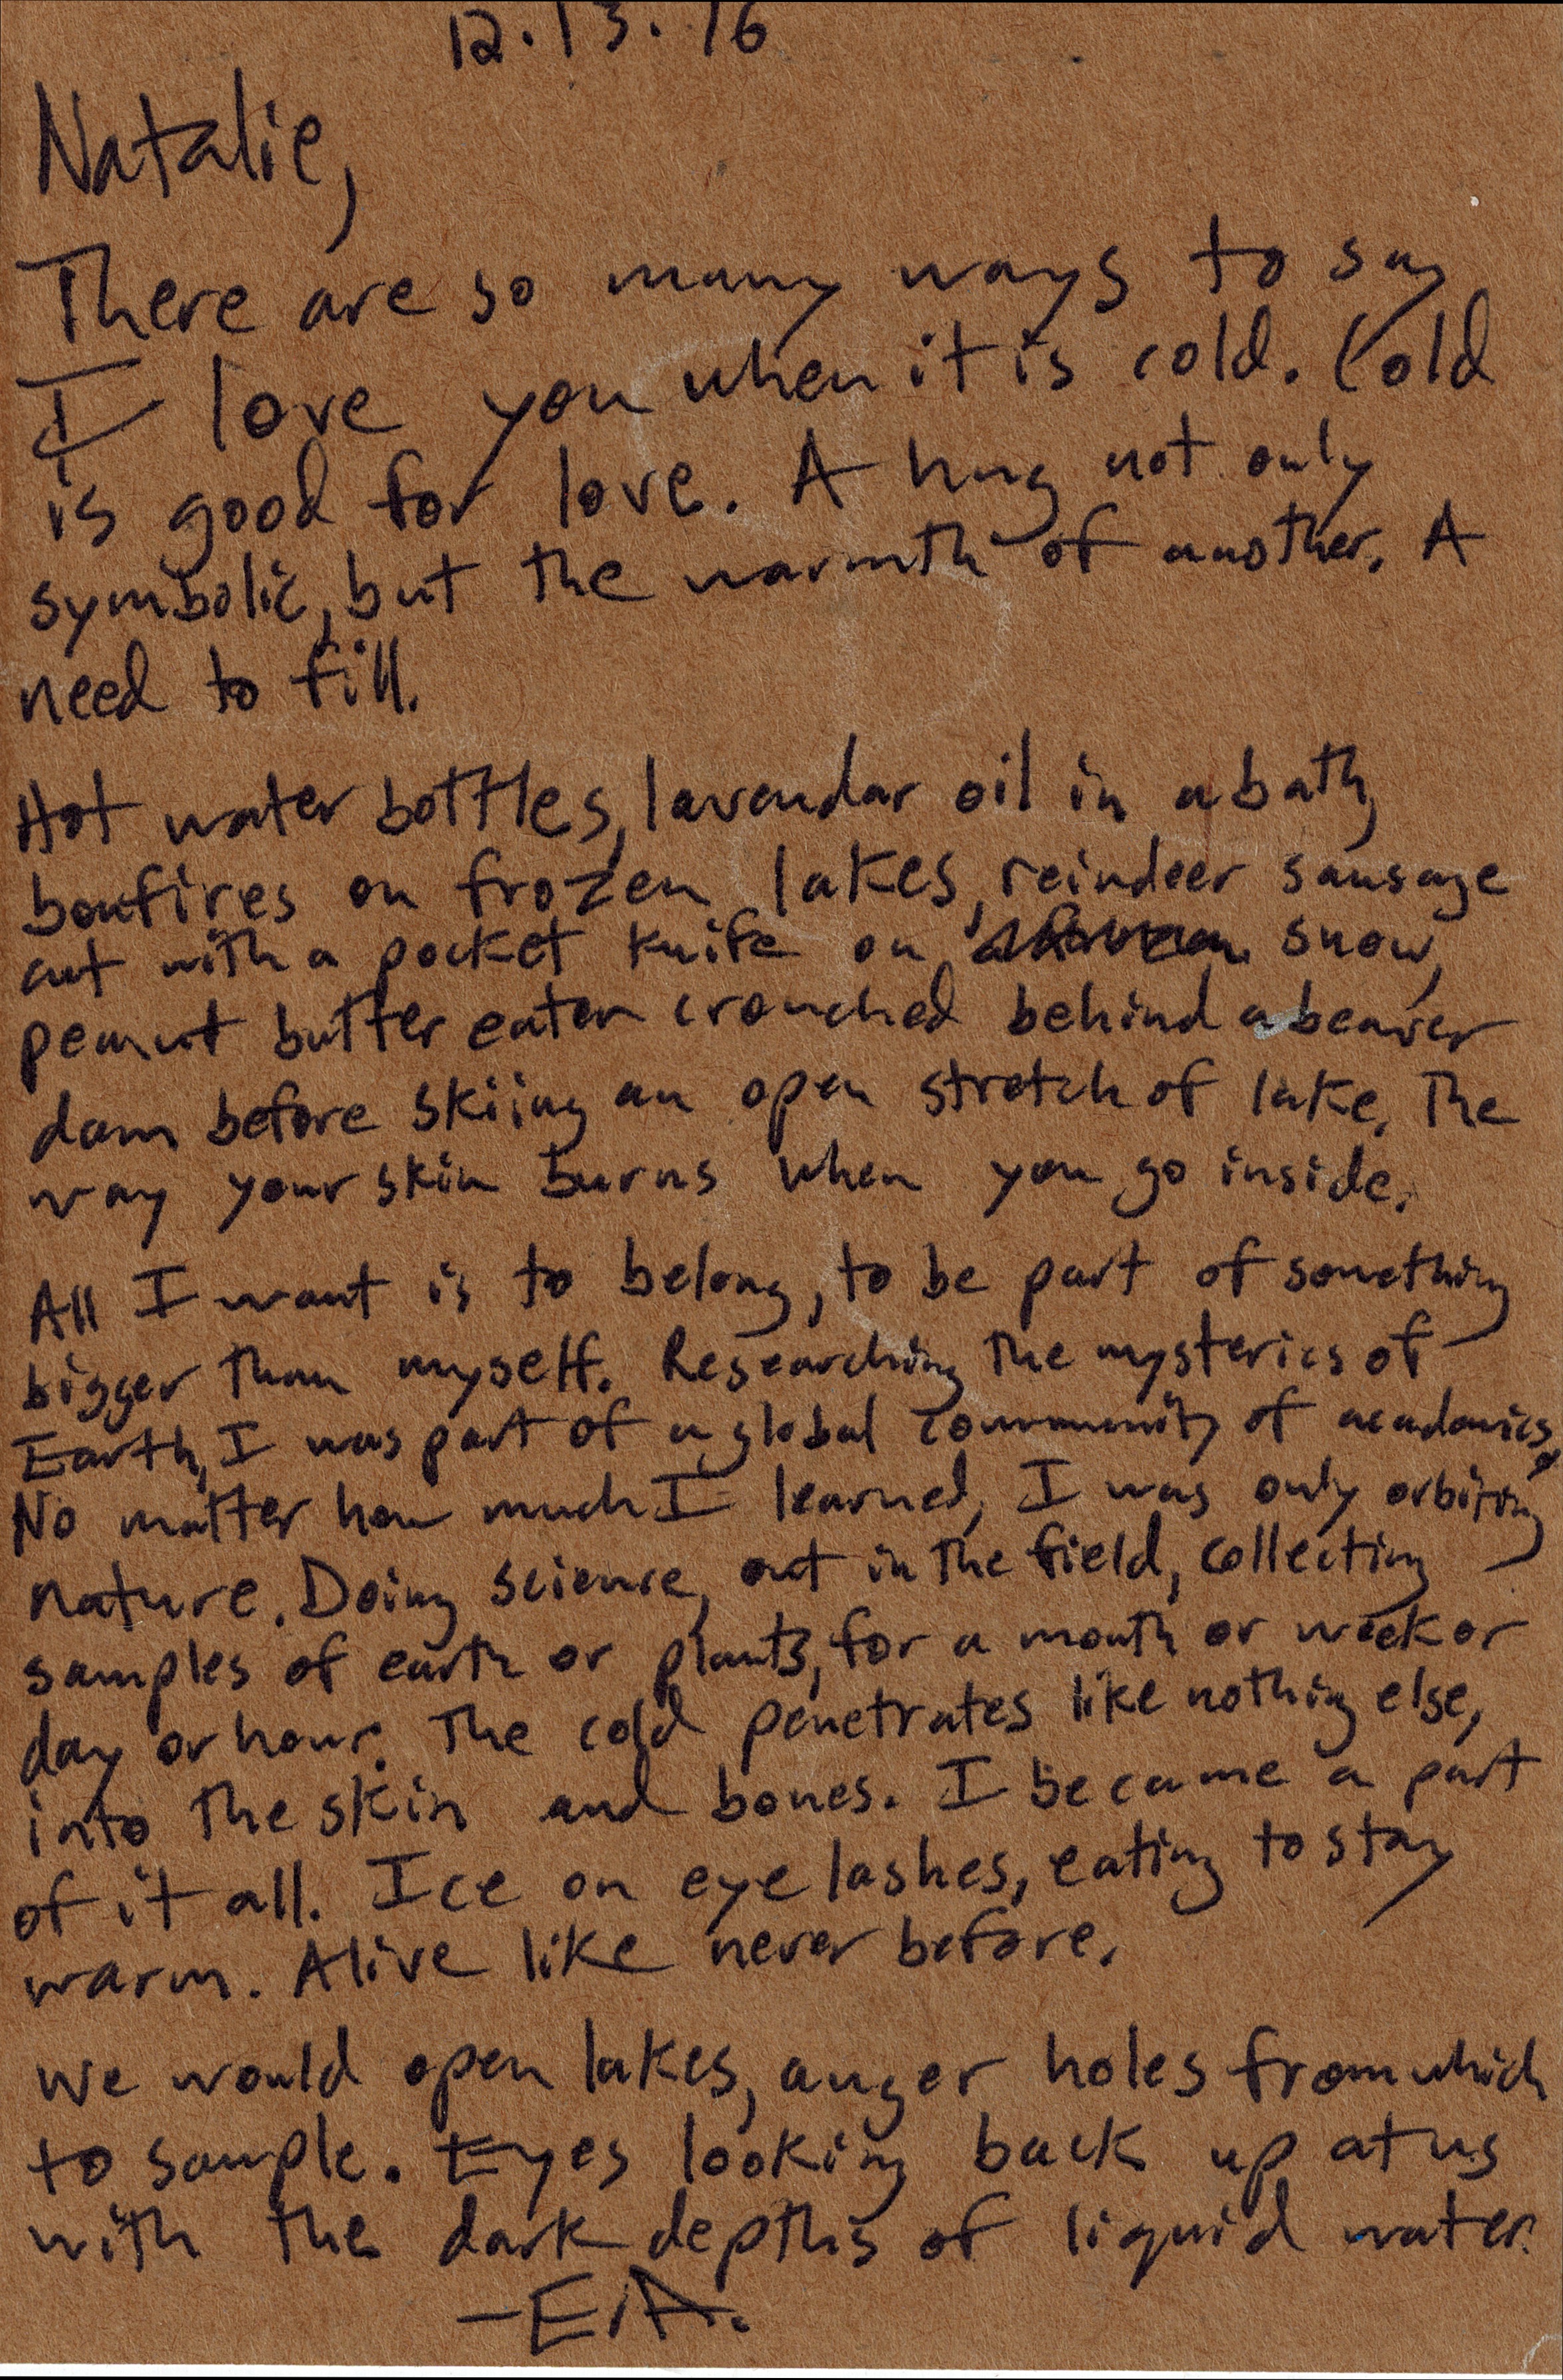 12.13.16
Natalie,
There are so many ways to say
I love you when it is cold. Cold
is good for love. A hug not only
symbolic, but the warmth of another. A
need to fill.
Hot water bottles, lavendar oil in a bath,
bonfires on frozen lakes, reindeer sausage
cut with a pocket knife on snow,
peanut butter eaten crouched behind a beaver
dam before skiing an open stretch of lake. The
way your skin burns when you go inside.
All I want is to belong, to be part of something
bigger than myself. Researching the mysteries of
Earth, I was part of a global community of academics.
No matter how much I learned, I was only orbiting
nature. Doing science, out in the field, collecting
samples of earth or plants, for a month or week or
day or hour. The cold penetrates like nothing else,
into the skin and bones. I became a part
of it all. Ice on eyelashes, eating to stay
warm. Alive like never before.
We would open lakes, auger holes from which
to sample. Eyes looking back up at us
with the dark depths of liquid water.